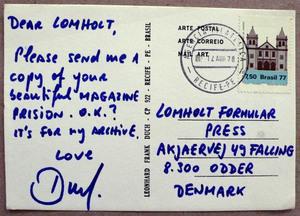 Dear LOMHOLT,
Please send me a
copy of your
beautiful MAGAZINE
PRISION. O.K.?
It's for my ARCHIVE.
Love
LEONHARD FRANK DUCH - CP 922 - RECIFE - PE - BRASIL
ARTE POSTAL
ARTE CORREIO
MAIL ART
RECIFE-PE
7,50 Brasil 77
LOMHOLT FORMULAR
PRESS
AKJAERVEJ 49 FALLING
8.300 ODDER
DENMARK